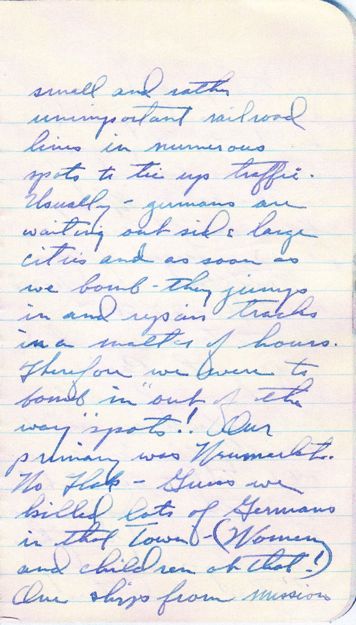 small and rather
unimportant railroad
lines in numerous
spots to tie up traffic.
Usually - germans are
waiting outside large
cities and as soon as
we bomb - they jump
in and repair tracks
in a matter of hours.
Therefore we were to
bomb in "out of the
way" spots!! Our
primary was Neumarkt.
No Flak - Guess we
killed lots of Germans
in that town - (Women
and children at that!)
One ships from mission